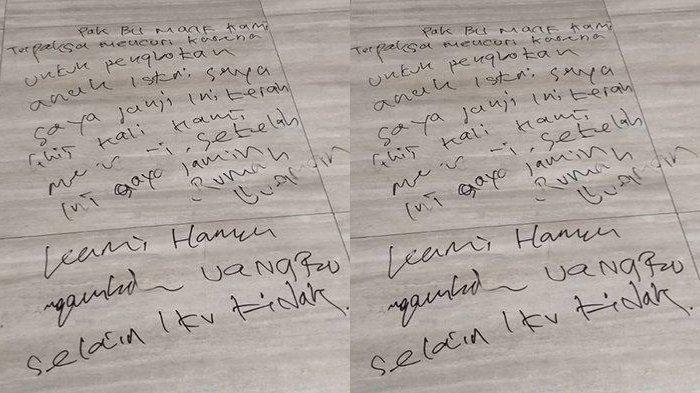 Pak Bu Maaf Kami
Terpaksa mencuri karena
untuk pengobatan
anak Istri saya
saya Janji Ini terah
khir kali Kami
mencuri Setelah
Ini saya jamin
Rumah
Kami Hanya
ngambil UANG
selain Itu tidak.
Pak Bu Maaf Kami
Terpaksa mencuri karena
untuk pengobatan
anak Istri saya
saya Janji Ini terah
khir kali Kami
mencuri Setelah
Ini saya jamin
Rumah
Kami Hanya
ngambil UANG
selain Itu tidak.